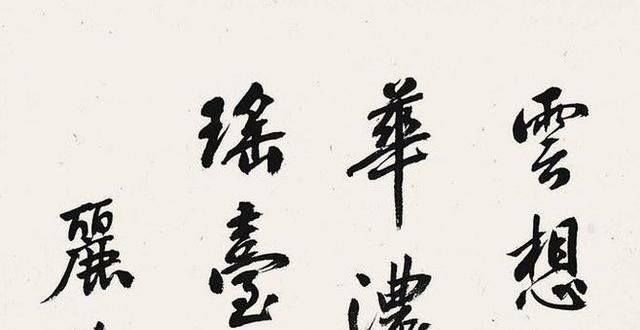 雲想
華濃
瑤臺
麗